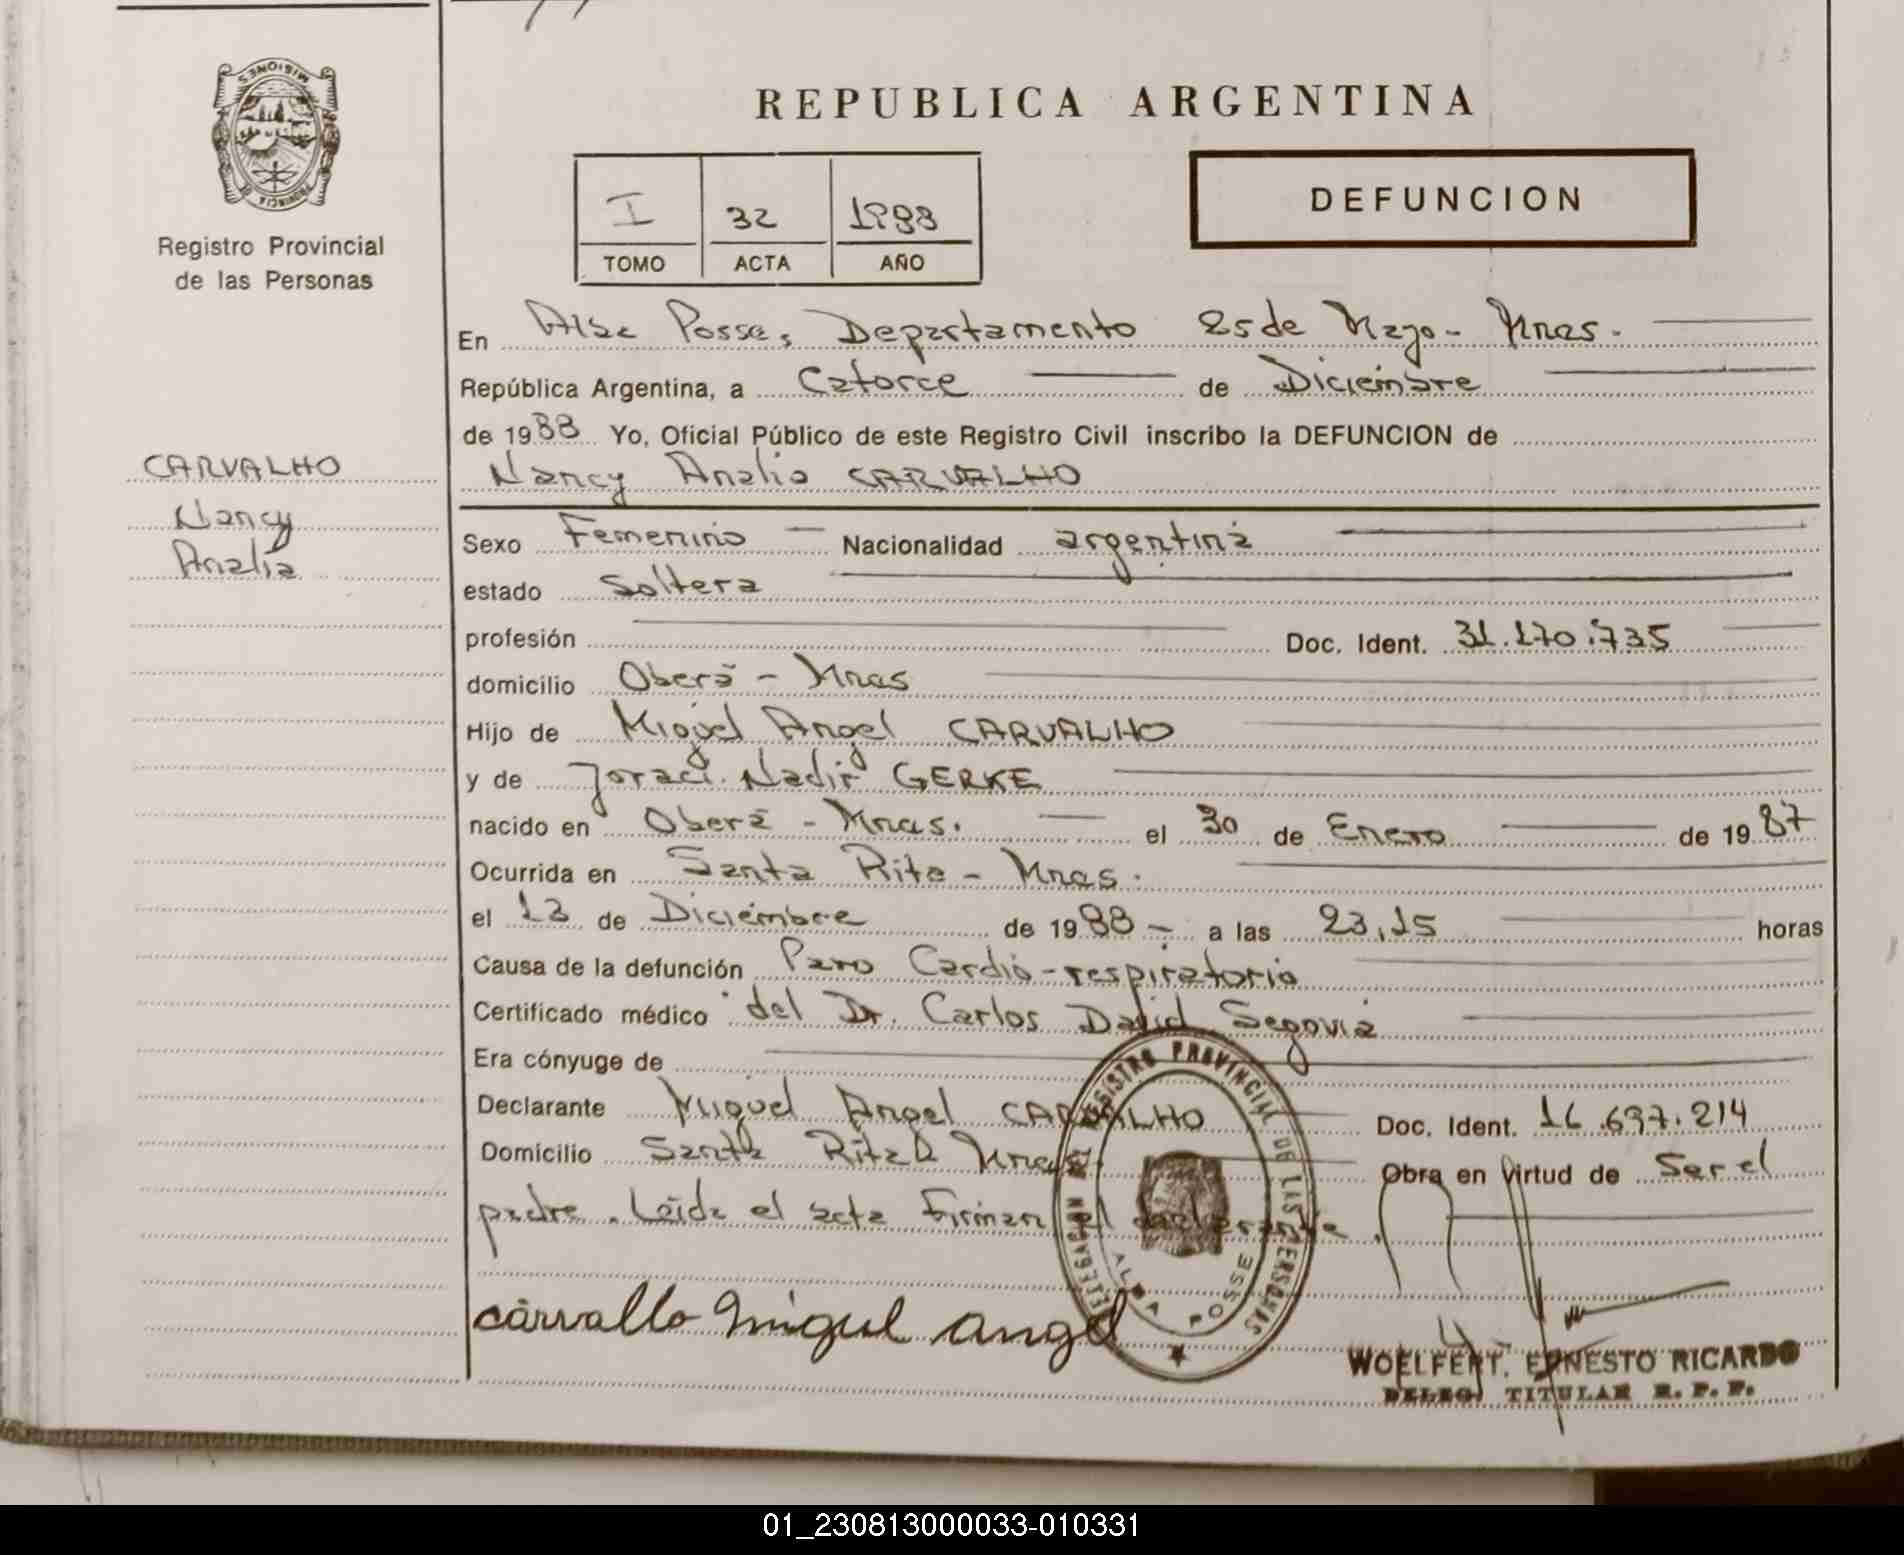 MISIONES
PROVINCIA DE
Registro Provincial
de las Personas
CARVALHO
Nancy
Analia
REPUBLICA ARGENTINA
I 32 1988
TOMO ACTA AÑO
DEFUNCION
En Alba Posse, Departamento 25 de Mayo - Mnes.
República Argentina, a Catorce de Diciembre
de 1988 Yo, Oficial Público de este Registro Civil inscribo la DEFUNCION de
Nancy Analia CARVALHO
Sexo Femenino Nacionalidad argentina
estado Soltera
profesión Doc. Ident. 31.170.735
domicilio Oberá - Mnes
Hijo de Miguel Angel CARVALHO
y de Joraci Nadir GERKE
nacido en Oberá - Mnes. el 30 de Enero de 1987
Ocurrida en Santa Rita - Mnes.
el 13 de Diciembre de 1988 - a las 23,15 horas
Causa de la defunción Paro Cardio-respiratorio
Certificado médico del Dr. Carlos David Segovia
Era cónyuge de
Declarante Miguel Angel CARVALHO Doc. Ident. 16.697.214
Domicilio Santa Rita Mnes. Obra en virtud de Ser el
padre. Leida el acta Firman el declarante.
DELEGACION REGISTRO PROVINCIAL DE LAS PERSONAS
ALBA POSSE
carvallo Miguel angel
WOELFERT, ERNESTO RICARDO
DELEG. TITULAR R. P. P.
01_230813000033-010331